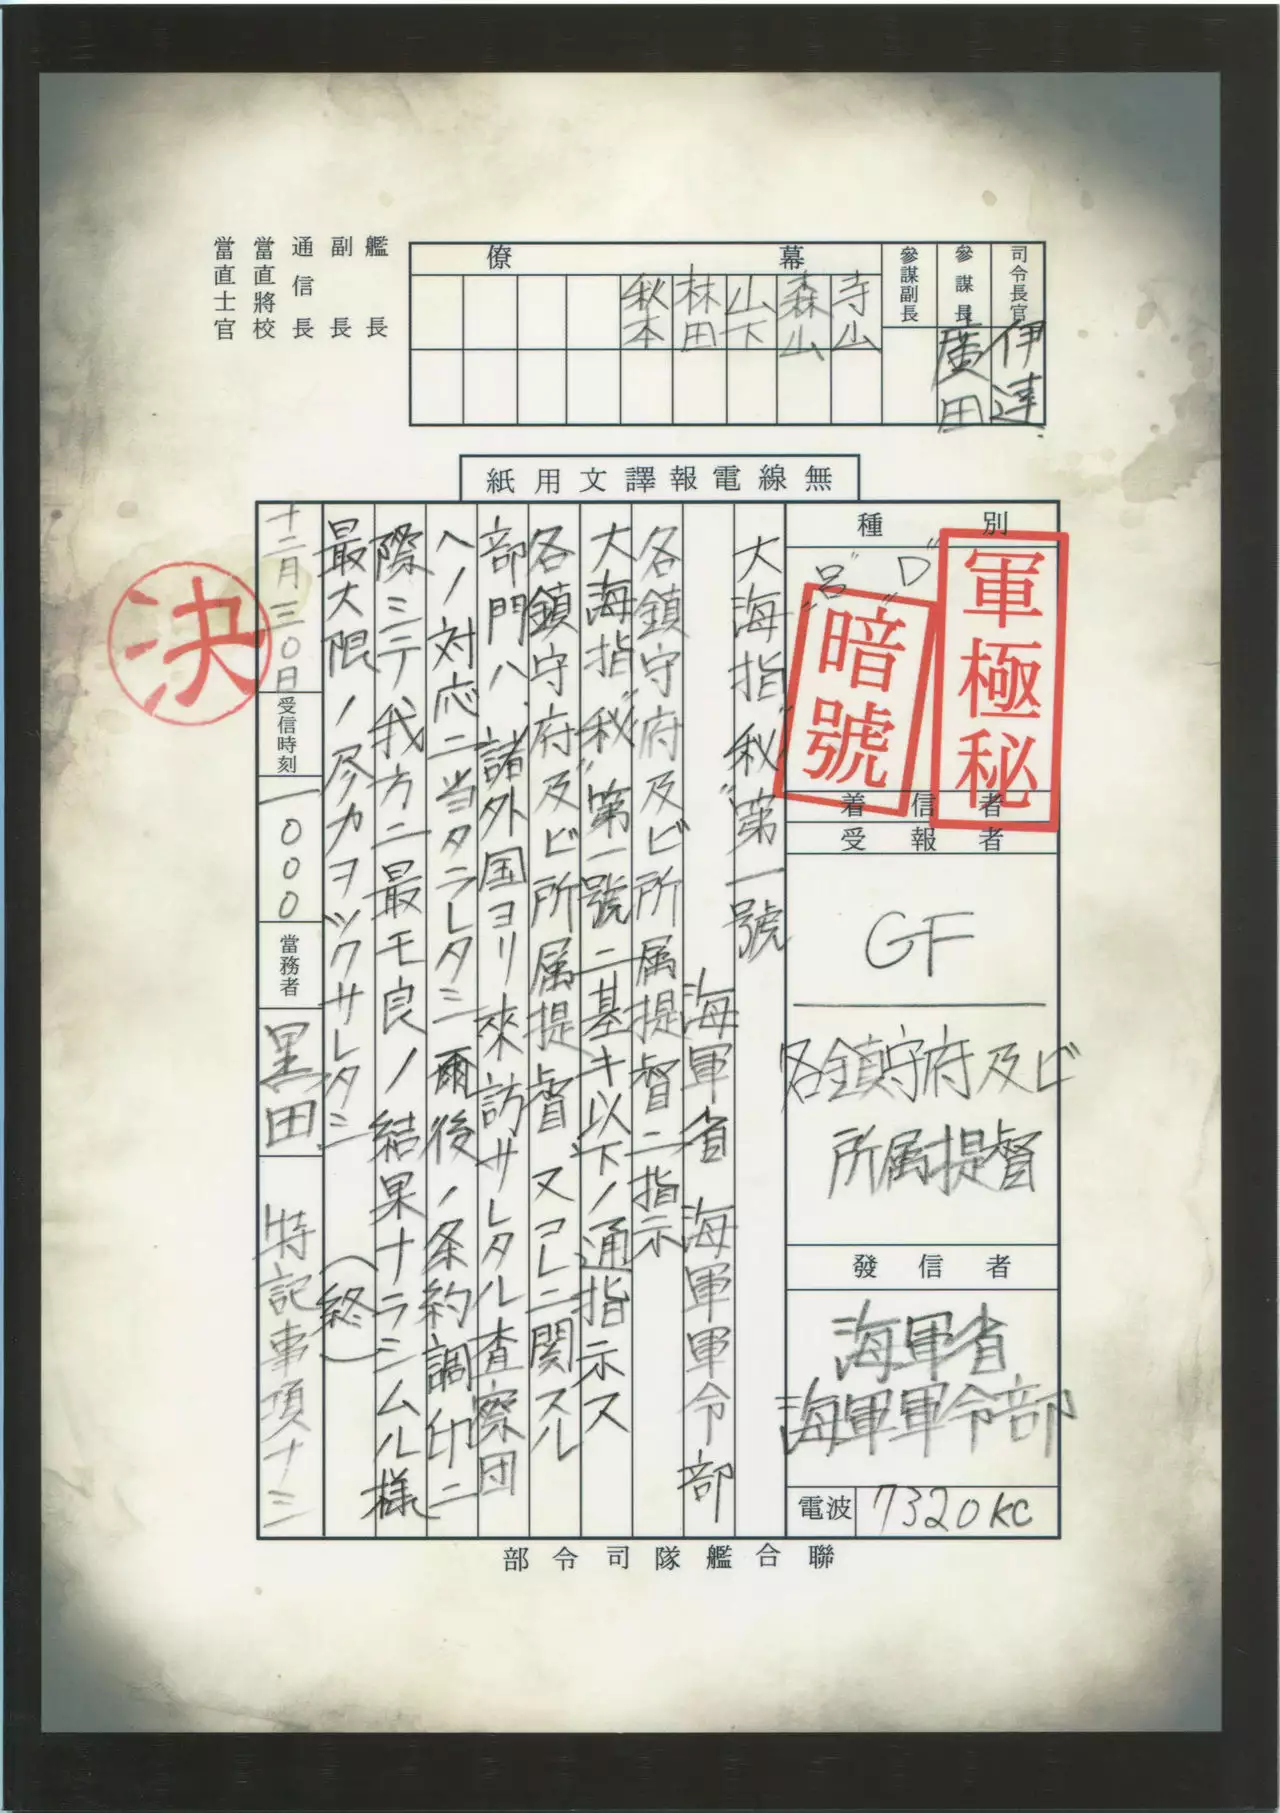 司令長官
伊達
参謀長
廣田
參謀副長
幕僚
寺山
森山
山下
林田
秋本
艦長
副長
通信長
當直將校
當直士官
無線電報譯文用紙
種別
"D"
"呂"
軍極秘
暗號
着信者
受報者
GF
各鎮守府及ビ
所属提督
發信者
海軍省
海軍軍令部
電波
7320KC
大海指"秘"第一號
海軍省 海軍軍令部
各鎮守府及ビ所属提督ニ指示
大海指"秘"第一號ニ基キ以下ノ通指示ス
各鎮守府及ビ所属提督、又コレニ関スル
部門ハ、諸外国ヨリ來訪サレタル査察団
ヘノ対応ニ当タラレタシ 爾後ノ条約調印ニ
際シテ我方ニ最モ良ノ結果ナラシムル様
最大限ノ尽力ヲツクサレタシ (終)
十二月三〇日
受信時刻
一〇〇〇
當務者
黒田
特記事項ナシ
決
聯合艦隊司令部